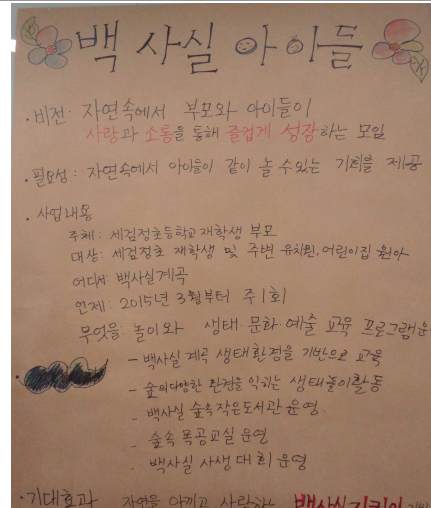 백사실 아이들
· 비전: 자연속에서 부모와 아이들이
사랑과 소통을 통해 즐겁게 성장하는 모임
· 필요성: 자연속에서 아이들이 같이 놀 수 있는 기회를 제공
· 사업내용
주체: 세검정초등학교 재학생 부모
대상: 세검정초 재학생 및 주변 유치원, 어린이집 원아
어디서: 백사실계곡
언제: 2015년 3월부터 주1회
무엇을: 놀이와 생태·문화·예술 교육 프로그램운
- 백사실 계곡 생태환경을 기반으로 교육
- 숲의 다양한 환경을 익히는 생태놀이활동
- 백사실 숲속작은도서관 운영
- 숲속 목공교실 운영
- 백사실 사생대회 운영
· 기대효과 자연을 아끼고 사랑하는 백사실지킴이